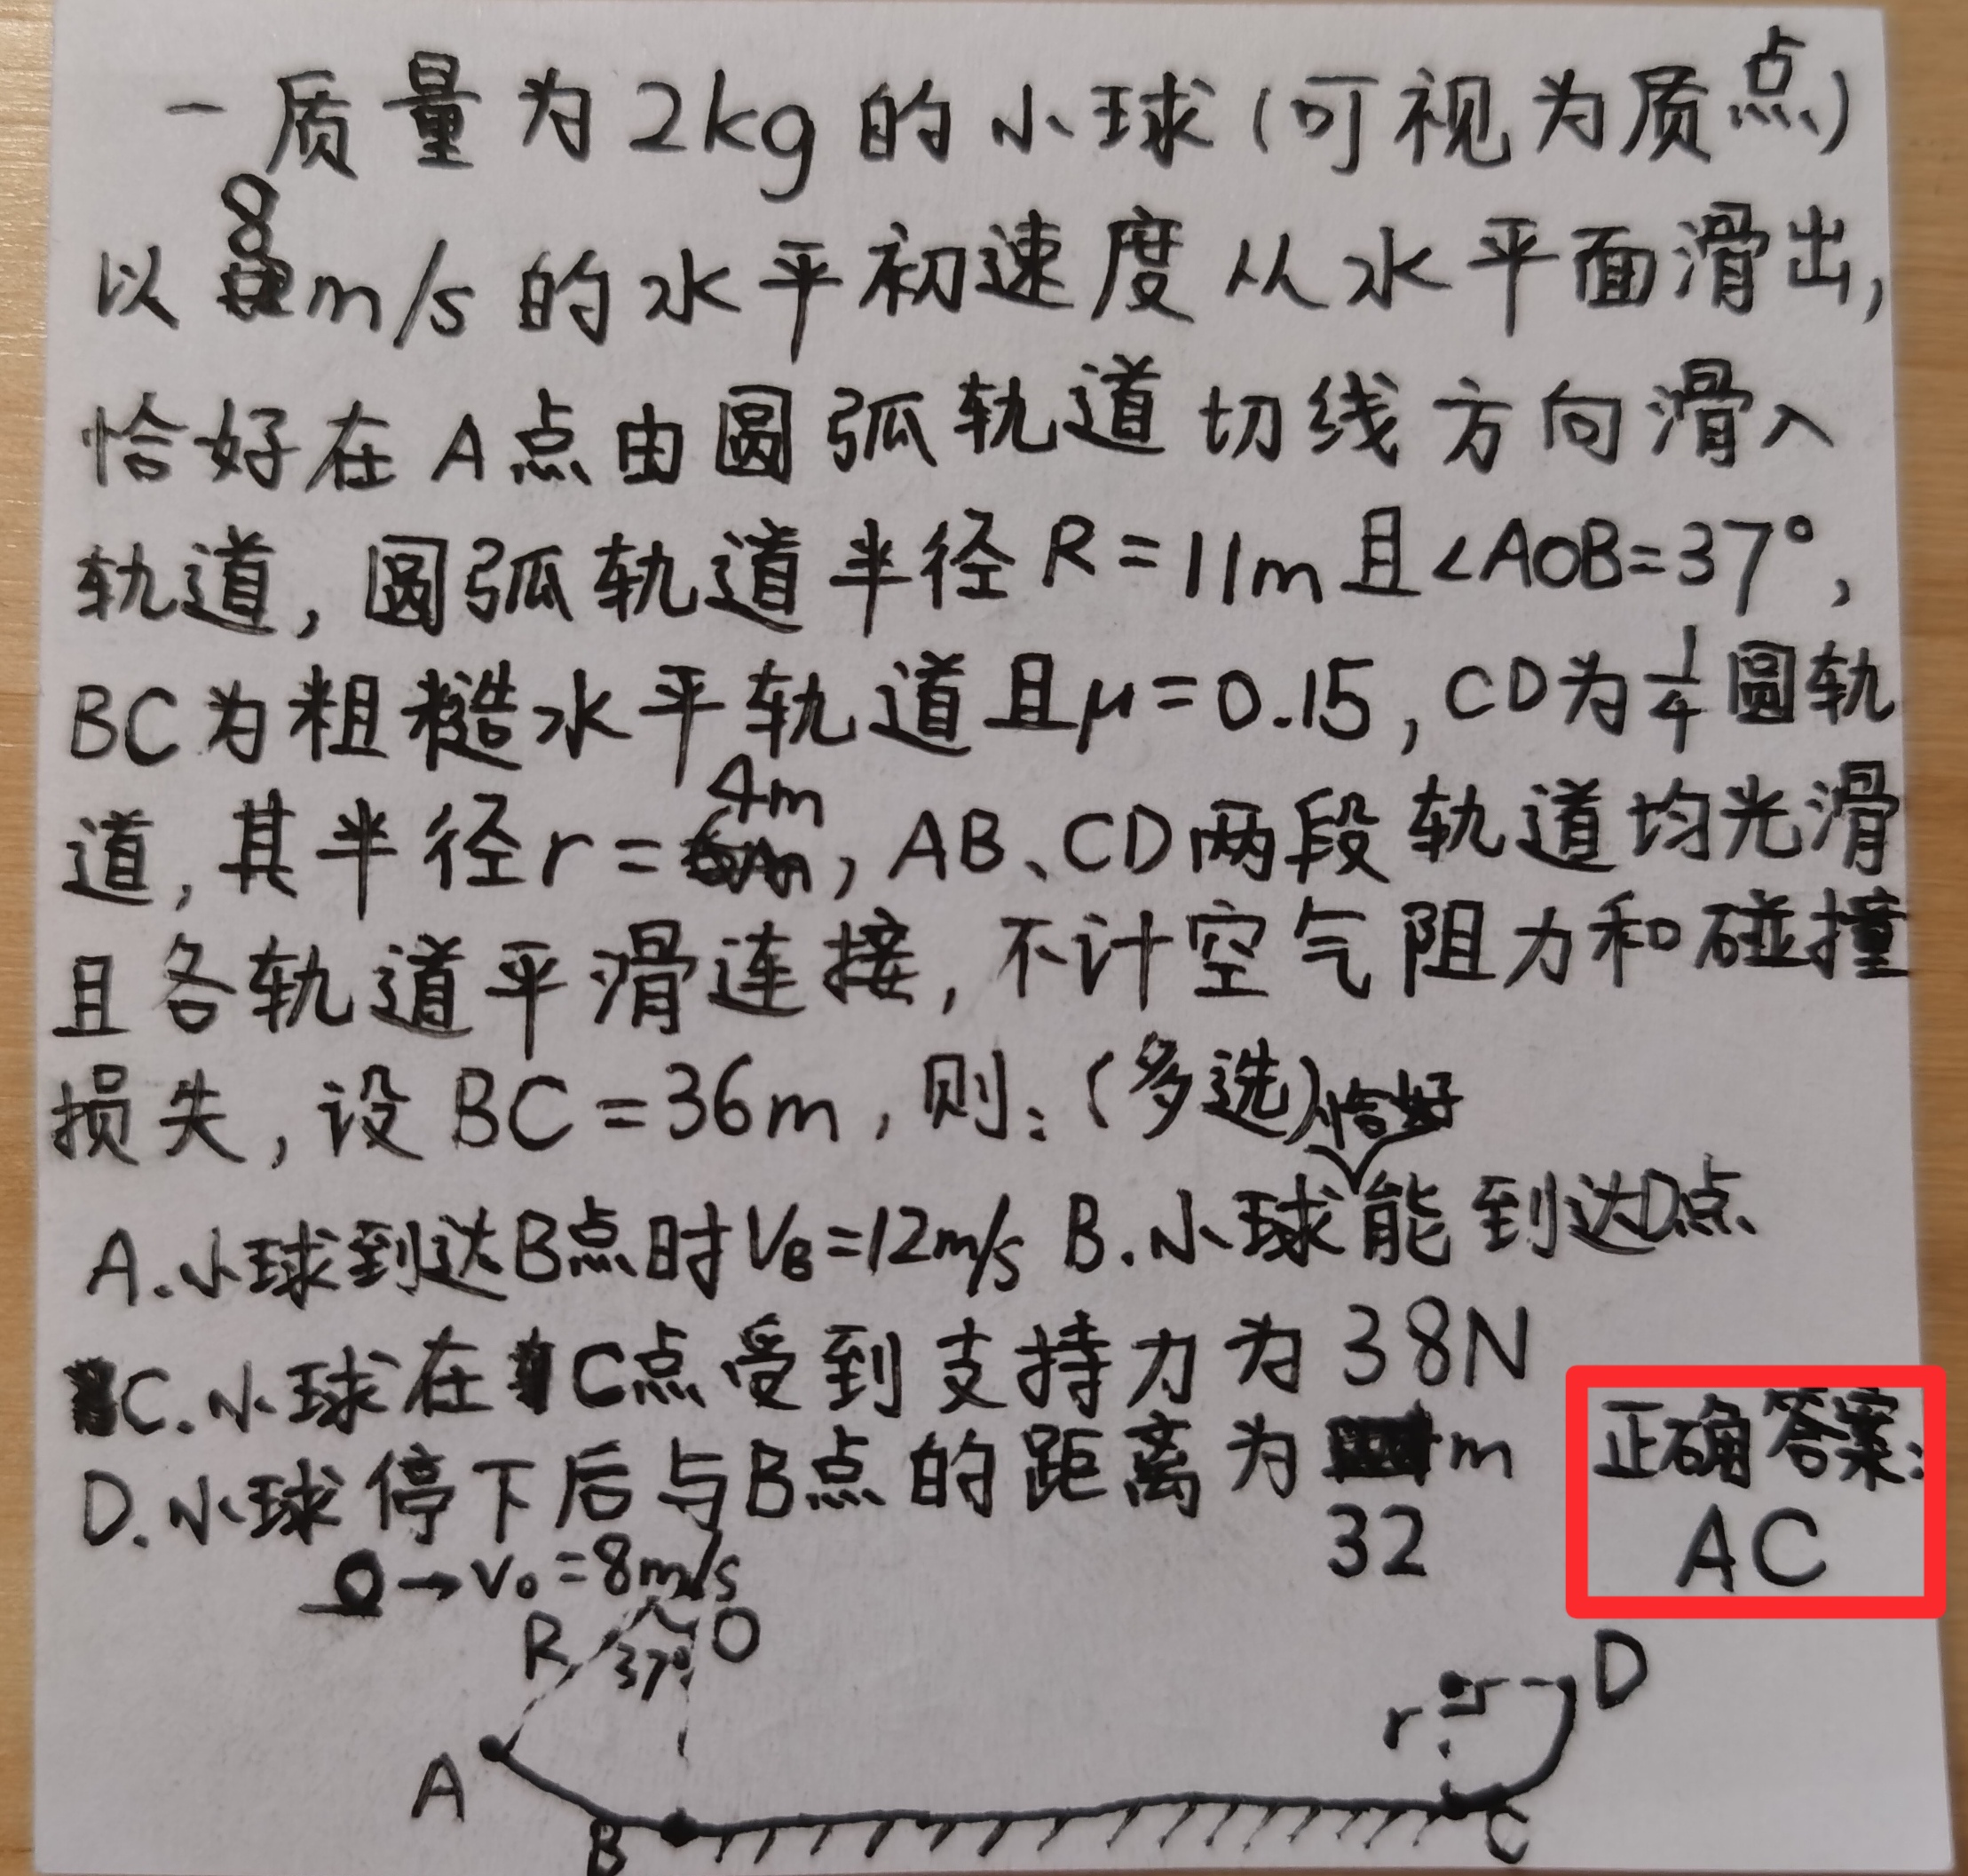 一质量为2kg的小球(可视为质点)
以8m/s的水平初速度从水平面滑出,
恰好在A点由圆弧轨道切线方向滑入
轨道,圆弧轨道半径R=11m且∠AOB=37°,
BC为粗糙水平轨道且μ=0.15,CD为1/4圆轨
道,其半径r=4m,AB、CD两段轨道均光滑
且各轨道平滑连接,不计空气阻力和碰撞
损失,设BC=36m,则:(多选)
A.小球到达B点时VB=12m/s B.小球恰好能到达D点
C.小球在C点受到支持力为38N
D.小球停下后与B点的距离为32m
正确答案:
AC
V₀=8m/s
R 37° O
A
B
r D
C